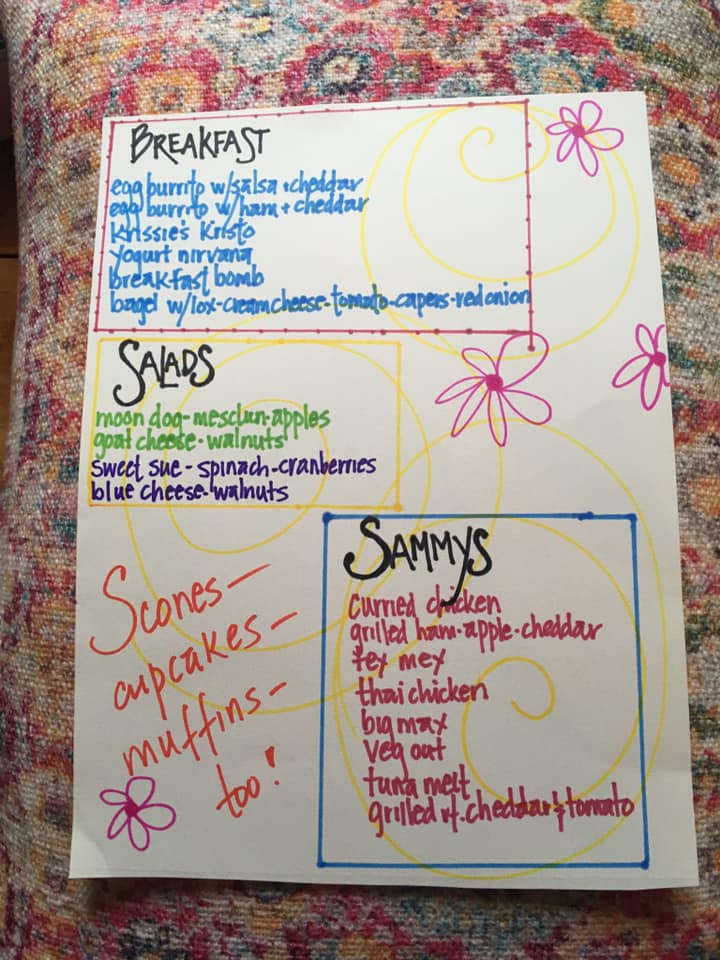 BREAKFAST
egg burrito w/salsa + cheddar
egg burrito w/ham + cheddar
Krissie's Kristo
yogurt nirvana
breakfast bomb
bagel w/lox-creamcheese-tomato-capers-red onion
SALADS
moon dog-mesclun-apples
goat cheese-walnuts
sweet sue - spinach-cranberries
blue cheese-walnuts
SAMMYS
curried chicken
grilled ham-apple-cheddar
tex mex
thai chicken
big max
veg out
tuna melt
grilled vt. cheddar & tomato
Scones-
cupcakes-
muffins-
too!